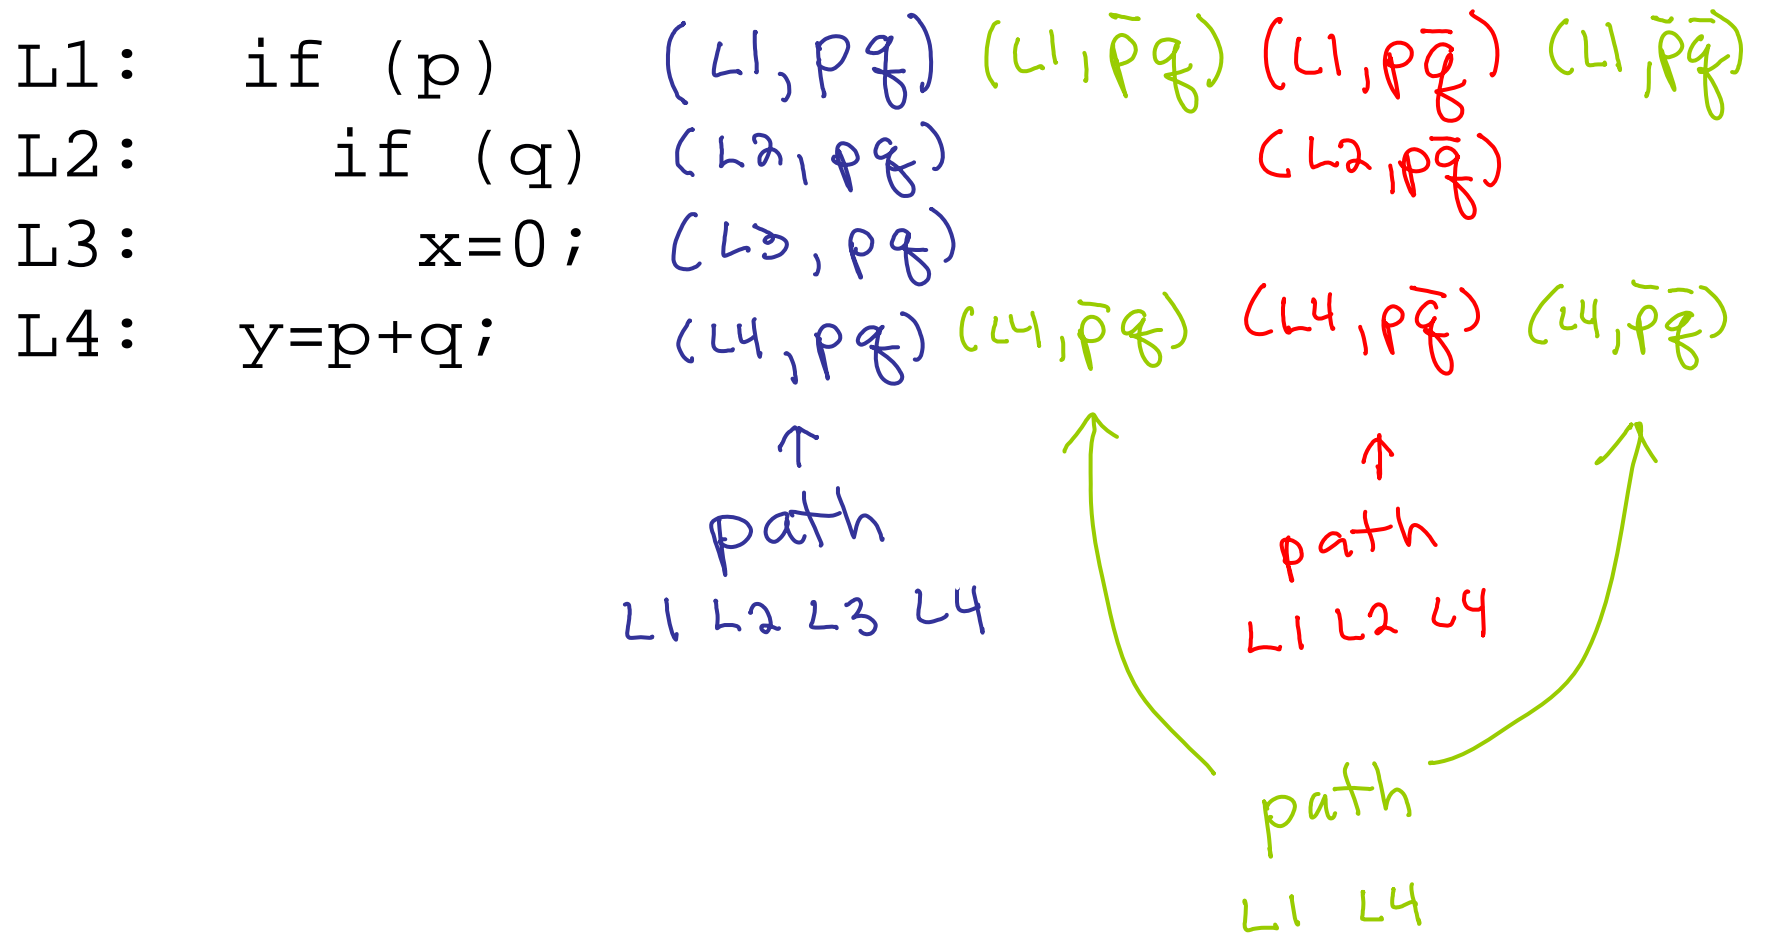 L1: if (p) (L1, pq) (L1, p̄q) (L1, pq̄) (L1, p̄q̄)
L2: if (q) (L2, pq) (L2, pq̄)
L3: x=0; (L3, pq)
L4: y=p+q; (L4, pq) (L4, p̄q) (L4, pq̄) (L4, p̄q̄)
path path
L1 L2 L3 L4 L1 L2 L4
path
L1 L4